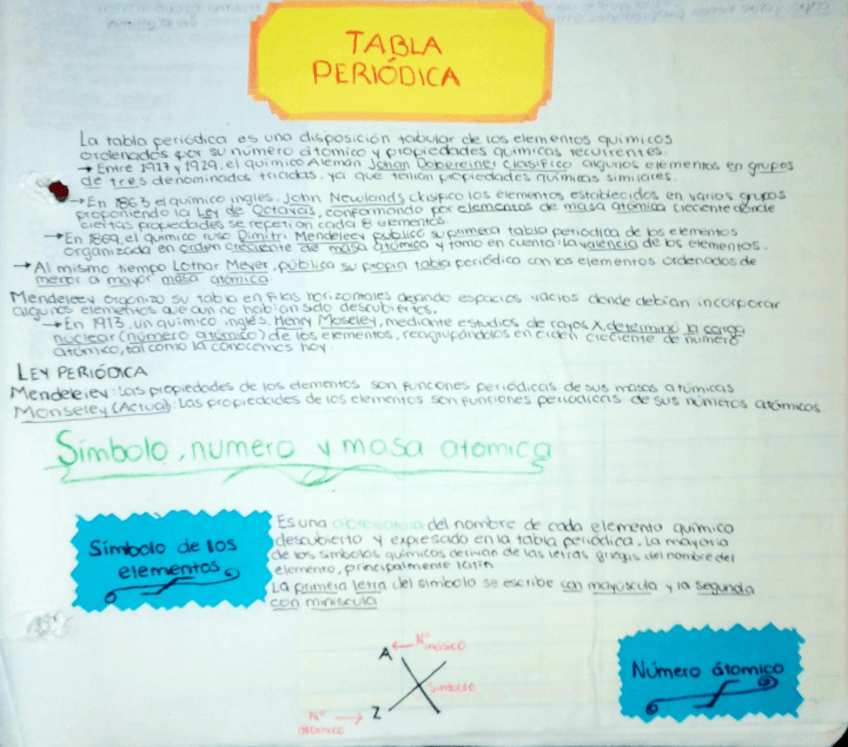 TABLA
PERIÓDICA
La tabla periódica es una disposición tabular de los elementos químicos
ordenados por su número átomico y propiedades químicas recurrentes.
→ Entre 1917 y 1929, el químico Alemán Johan Dobereiner clasifico algunos elementos en grupos
de tres denominados triadas, ya que tenian propiedades químicas similares.
→ En 1863 el químico ingles, John Newlands clasifico los elementos establecidos en varios grupos
proponiendo la Ley de Octavas, conformando por elementos de masa atómica creciente donde
ciertas propiedades se repetian cada 8 elementos.
→ En 1869, el químico ruso Dimitri Mendeleev publicó su primera tabla periodica de los elementos
organizada en orden creciente de masa atómica y tomo en cuenta la valencia de los elementos.
→ Al mismo tiempo Lothar Meyer, pública su propia tabla periódica con los elementos ordenados de
menor a mayor masa atómica.
Mendeleev organizo su tabla en filas horizontales dejando espacios vacios donde debían incorporar
algunos elementos que aun no habían sido descubiertos.
→ En 1913, un químico inglés, Henry Moseley, mediante estudios de rayos X, determinó la carga
nuclear (número atómico) de los elementos, reagrupándolos en orden creciente de número
atómico, tal como la conocemos hoy.
LEY PERIÓDICA
Mendeleiev: Las propiedades de los elementos son funciones periódicas de sus masas atómicas
Monseley (Actual): Las propiedades de los elementos son funciones periódicas de sus números atómicos
Símbolo, numero y masa atomica
Símbolo de los
elementos
Es una abreviatura del nombre de cada elemento químico
descubierto y expresado en la tabla periódica. La mayoria
de los símbolos químicos derivan de las letras griegas del nombre del
elemento, principalmente latín
La primera letra del símbolo se escribe con mayúscula y la segunda
con miniscula
A ← N° másico
Símbolo
N° atomico → Z
Número átomico